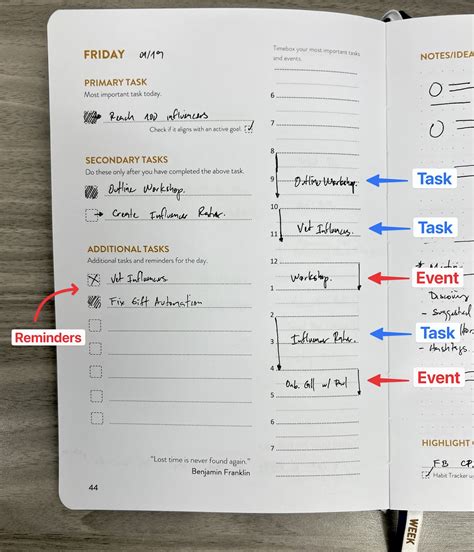 FRIDAY 01/19
PRIMARY TASK
Most important task today.
Reach 100 influencers
Check if it aligns with an active goal.
SECONDARY TASKS
Do these only after you have completed the above task.
Outline Workshop.
Create Influencer Rater.
ADDITIONAL TASKS
Additional tasks and reminders for the day.
Vet Influencers
Fix Gift Automation
Reminders
"Lost time is never found again."
Benjamin Franklin
44
Timebox your most important tasks
and events.
6
7
8
9 Outline Workshop.
Task
10
11 Vet Influencers.
Task
12
1 Workshop.
Event
2
3 Influencer Rater.
Task
4
5 Onb. Call w/
Event
6
7
NOTES/IDEA
Discovery
Suggested
Hashtags.
HIGHLIGHT
FB
Habit Tracker
WEEK